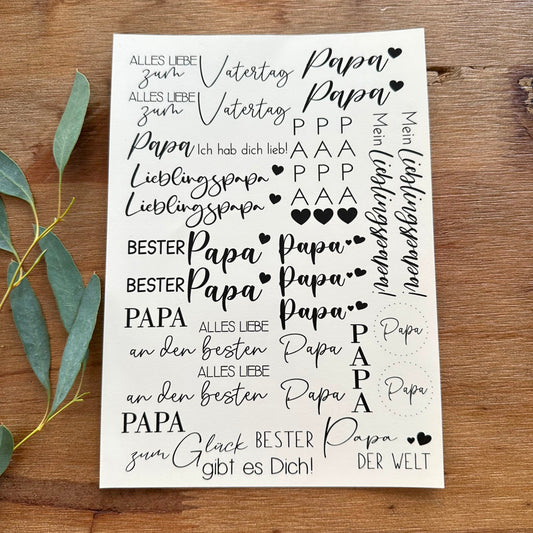 ALLES LIEBE
zum Vatertag
Papa
ALLES LIEBE
zum Vatertag
Papa
Papa Ich hab dich lieb!
Lieblingspapa
Lieblingspapa
P P P
A A A
P P P
A A A
Mein Lieblingspapa!
Mein Lieblingspapa!
BESTER Papa
BESTER Papa
Papa
Papa
Papa
PAPA
ALLES LIEBE
an den besten Papa
ALLES LIEBE
an den besten Papa
PAPA
PAPA
Papa
Papa
zum Glück
gibt es Dich!
BESTER Papa
DER WELT